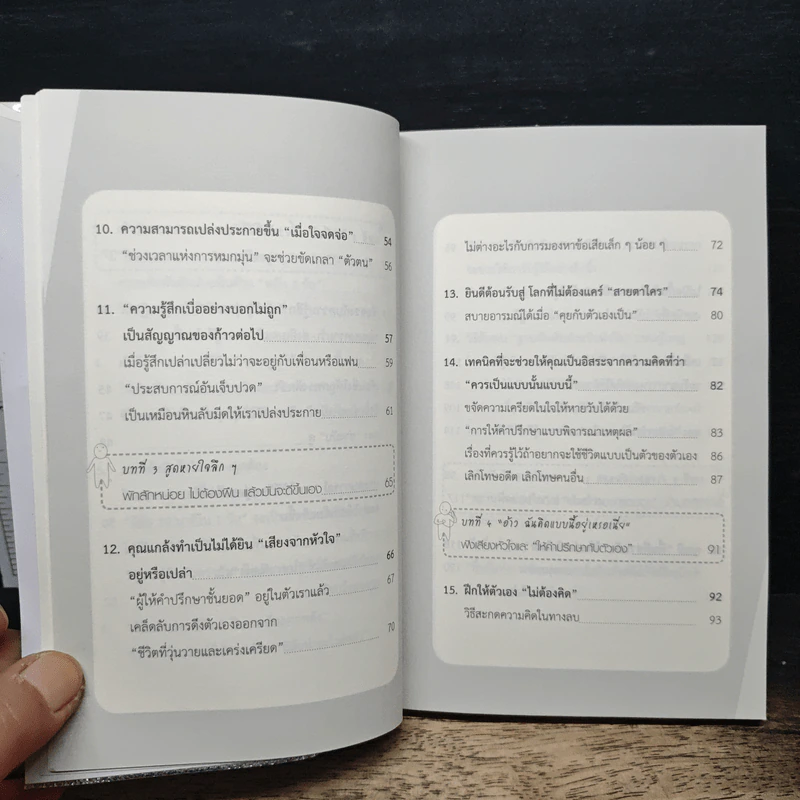 10. ความสามารถเปล่งประกายขึ้น “เมื่อใจจดจ่อ” 54
“ช่วงเวลาแห่งการหมกมุ่น” จะช่วยขัดเกลา “ตัวตน” 56
11. “ความรู้สึกเบื่ออย่างบอกไม่ถูก”
เป็นสัญญาณของก้าวต่อไป 57
เมื่อรู้สึกเปล่าเปลี่ยวไม่ว่าจะอยู่กับเพื่อนหรือแฟน 59
“ประสบการณ์อันเจ็บปวด”
เป็นเหมือนหินลับมีดให้เราเปล่งประกาย 61
บทที่ 3 สูดหายใจลึก ๆ
พักสักหน่อย ไม่ต้องฝืน แล้วมันจะดีขึ้นเอง 65
12. คุณแกล้งทำเป็นไม่ได้ยิน “เสียงจากหัวใจ”
อยู่หรือเปล่า 66
“ผู้ให้คำปรึกษาชั้นยอด” อยู่ในตัวเราแล้ว 67
เคล็ดลับการดึงตัวเองออกจาก
“ชีวิตที่วุ่นวายและเคร่งเครียด” 70
ไม่ต่างอะไรกับการมองหาข้อเสียเล็ก ๆ น้อย ๆ 72
13. ยินดีต้อนรับสู่ โลกที่ไม่ต้องแคร์ “สายตาใคร” 74
สบายอารมณ์ได้เมื่อ “คุยกับตัวเองเป็น” 80
14. เทคนิคที่จะช่วยให้คุณเป็นอิสระจากความคิดที่ว่า
“ควรเป็นแบบนั้นแบบนี้” 82
ขจัดความเครียดในใจให้หายวับได้ด้วย
“การให้คำปรึกษาแบบพิจารณาเหตุผล” 83
เรื่องที่ควรรู้ไว้ถ้าอยากจะใช้ชีวิตแบบเป็นตัวของตัวเอง 86
เลิกโทษอดีต เลิกโทษคนอื่น 87
บทที่ 4 “อ้าว ฉันคิดแบบนี้อยู่เหรอเนี่ย”
ฟังเสียงหัวใจและ “ให้คำปรึกษากับตัวเอง” 91
15. ฝึกให้ตัวเอง “ไม่ต้องคิด” 92
วิธีสะกดความคิดในทางลบ 93